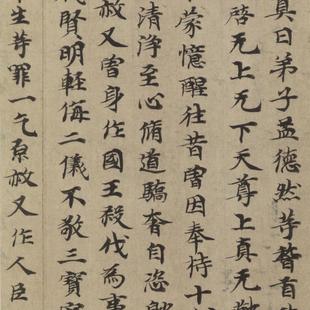 真曰弟子孟德然等稽首
啓无上无下天尊上真无
蒙憶醒往昔曾因奉持十
清淨至心脩道驕奢自恣
赦又曾身作國王殺伐為事
賢明輕侮二儀不敬三寶
生等罪一乞原赦又作人臣